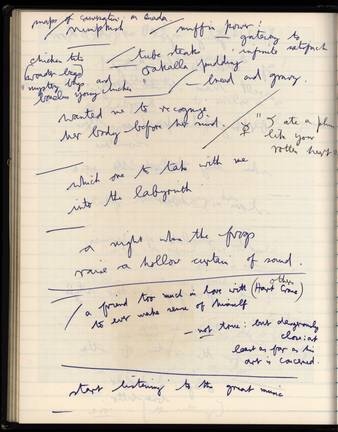 maps of conversation, as
muffin power!
gateway to
infinite
chicken tits
tube steak
wonder bag
pudding
"mystery bags and
boneless young chicken"
bread and gravy.
wanted me to recognize
her body before her mind.
" I ate a plum
like your
rotten heart
which one to take with me
into the labyrinth
a night when the frogs
raise a hollow curtain of sound.
other
a friend too much in love with (Hart Crane)
to ever make sense of himself
— not true: but dangerously
close: at
least as far as his
art is concerned.
start listening to the great music